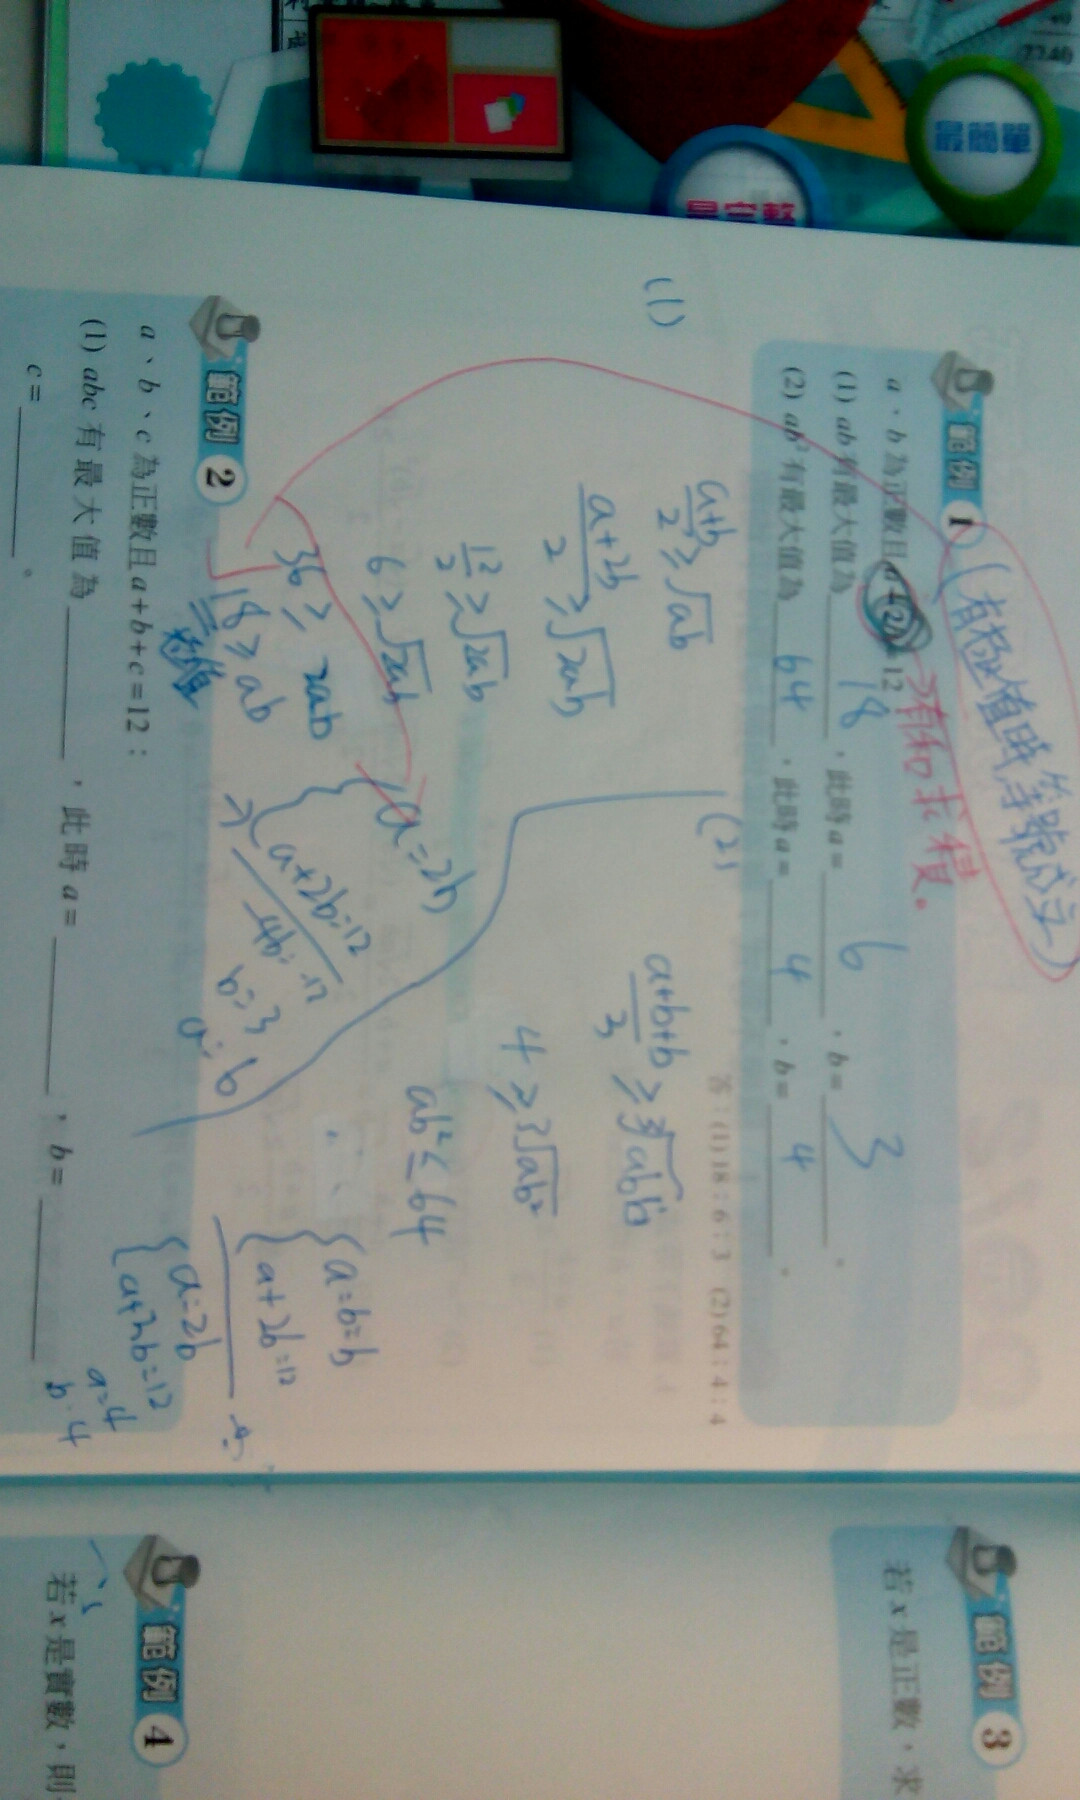 範例 1 (有極值時等號成立)
a、b為正數且a+2b=12 >有和求積。
(1) ab有最大值為 18 ,此時a= 6 ,b= 3 。
(2) ab²有最大值為 64 ,此時a= 4 ,b= 4 。
答:(1)18;6;3 (2)64;4;4
(1)
a+b/2 ≥ √ab
a+2b/2 ≥ √2ab
12/2 ≥ √2ab
6 ≥ √2ab
36 ≥ 2ab
18 ≥ ab
極值
a=2b
a+2b=12
4b=12
b=3
a=6
(2)
a+b+b/3 ≥ ∛abb
4 ≥ ∛ab²
ab² ≤ 64
a=b=b
a+2b=12
a=2b
a+2b=12
a=4
b=4
範例 2
a、b、c為正數且a+b+c=12:
(1) abc有最大值為 ,此時a= ,b=
c= 。
範例 3
若x是正數,求
範例 4
若x是實數,則